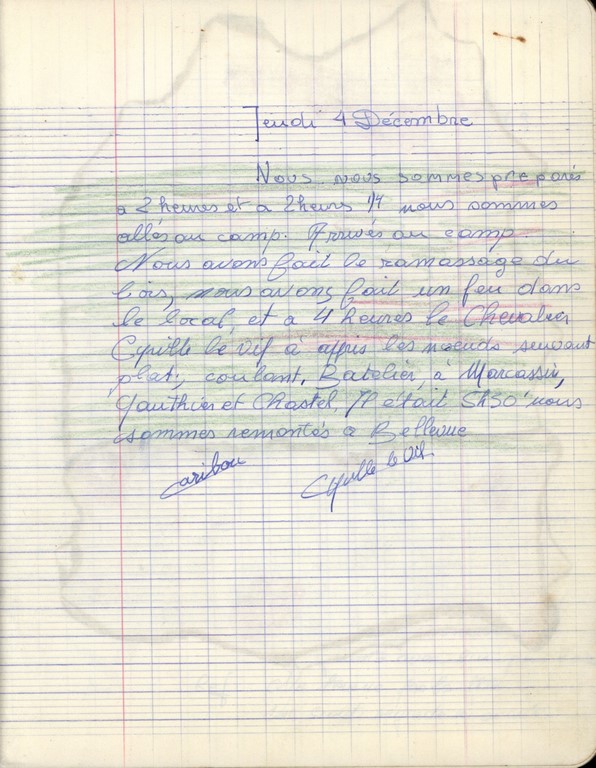 Jeudi 4 Décembre
Nous nous sommes préparés
a 2 heures et a 2 heurs 1/4 nous sommes
allés au camp. Arrivés au camp.
Nous avons fait le ramassage du
bois, nous avons fait un feu dans
le local, et a 4 heures le Chevalier
Cyrille le Vif à appris les nœuds suivant
plat, coulant, Batelier, à Marcassin,
Gauthier et Chastel. Il était 5h30 nous
sommes remontés a Bellevue
Caribou Cyrille le Vif